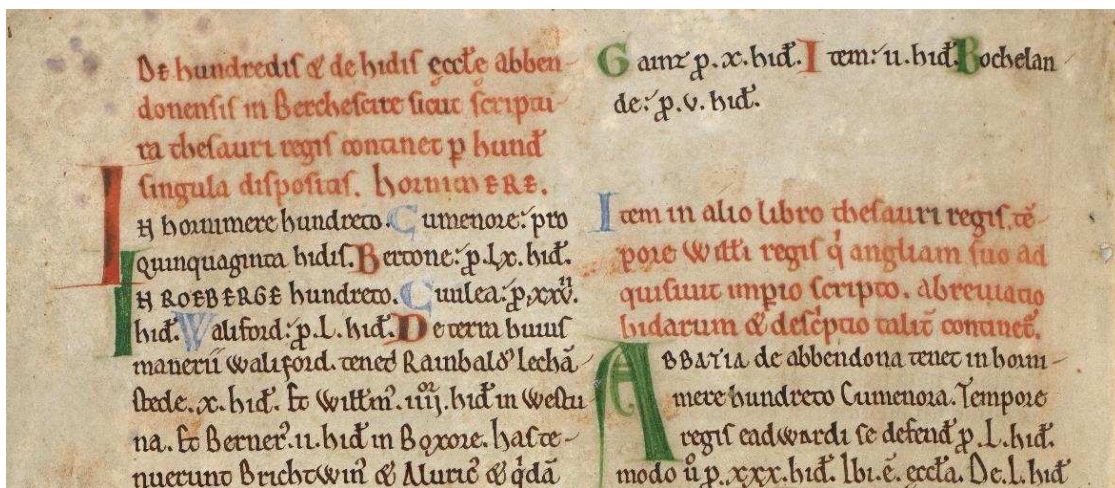 De hundredis & de hidis ęccłe abben-
donensis in Berchescire sicut scriptu-
ra thesauri regis continet p̱ hund̄
singula dispositas. HORNIMERE.
IN hornimere hundreto. Cumenore: pro
quinquaginta hidis. Bertone: p̱. lx. hid̄.
IN ROEBERGE hundreto. Cuulea: p̱. xxv.
hid̄. Waliford: p̱. L. hid̄. De terra huius
manerii Waliford. tened Rainbald᾽ lechā-
stede. x. hid̄. Et Willm᾽. iiij. hid̄ in Westu-
na. Et Berner᾽. ii. hid̄ in Boxore. has te-
nuerunt Brichtwin᾽ & Aluric᾽ & q̇dā
Gainz p̱. x. hid̄. Item: ii. hid̄. Bochelan-
de: p̱. v. hid̄.
Item in alio libro thesauri regis. tē-
pore Willi regis q̇ angliam suo ad
quisiuit imp̱io scripto. abreuiatio
hidarum & desc̄ptio talit̄ continet̄.
ABBATIA de abbendona tenet in horni-
mere hundreto Cumenora. Tempore
regis eadwardi se defend̄ p̱. L. hid̄.
modo u̇ p̱. xxx. hid̄. Ibi. ē. ęccła. De. L. hid̄